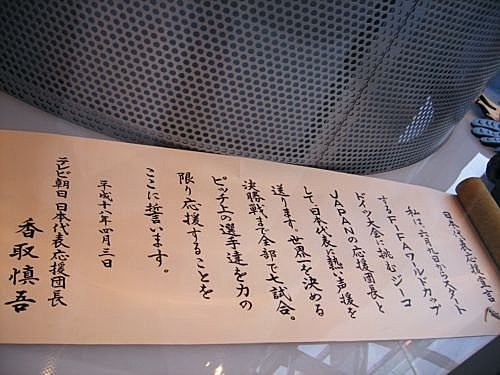 日本代表応援宣言
私は、六月九日からスタート
するFIFAワールドカップ
ドイツ大会に挑むジーコ
JAPANの応援団長と
して、日本代表に熱い声援を
送ります。世界一を決める
決勝戦まで全部で七試合。
ピッチ上の選手達を力の
限り応援することを
ここに誓います。
平成十八年四月三日
テレビ朝日 日本代表応援団長
香取慎吾